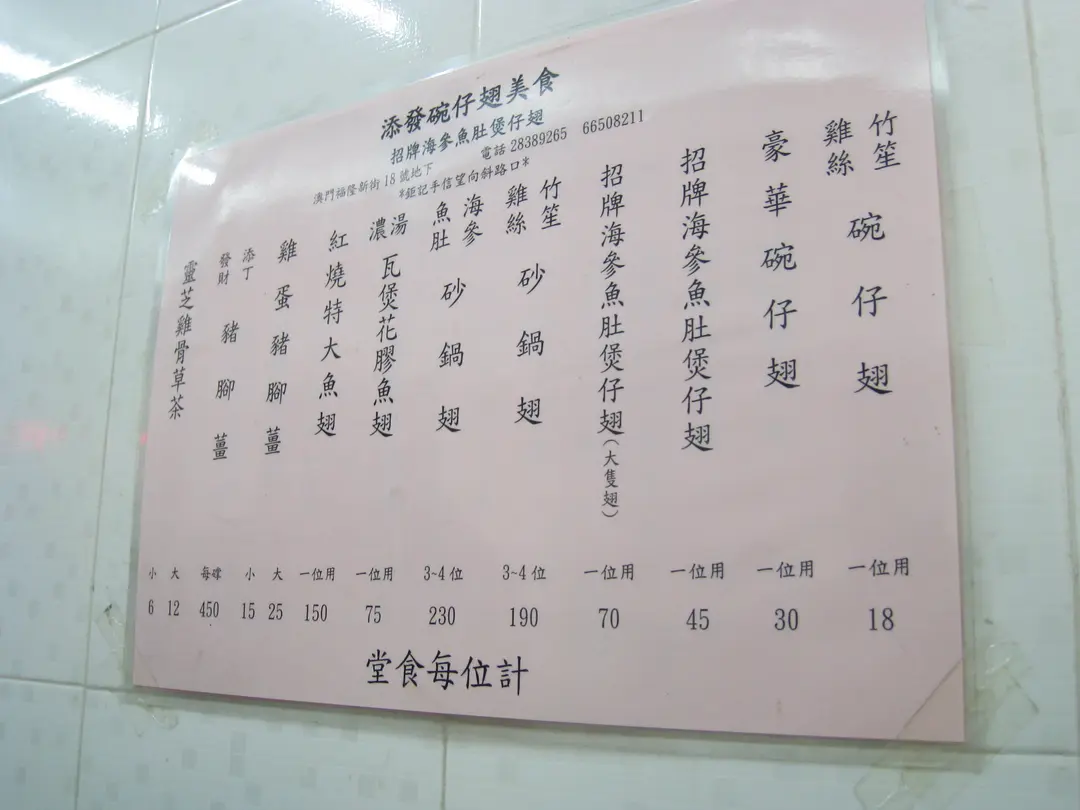 添發碗仔翅美食
招牌海參魚肚煲仔翅
電話 28389265 66508211
澳門福隆新街 18 號地下
*鉅記手信望向斜路口*
竹笙雞絲碗仔翅 一位用 18
豪華碗仔翅 一位用 30
招牌海參魚肚煲仔翅 一位用 45
招牌海參魚肚煲仔翅(大隻翅) 一位用 70
竹笙雞絲砂鍋翅 3~4 位 190
海參魚肚砂鍋翅 3~4 位 230
濃湯瓦煲花膠魚翅 一位用 75
紅燒特大魚翅 一位用 150
雞蛋豬腳薑 大 25 小 15
添丁發財豬腳薑 每 450
靈芝雞骨草茶 大 12 小 6
堂食每位計